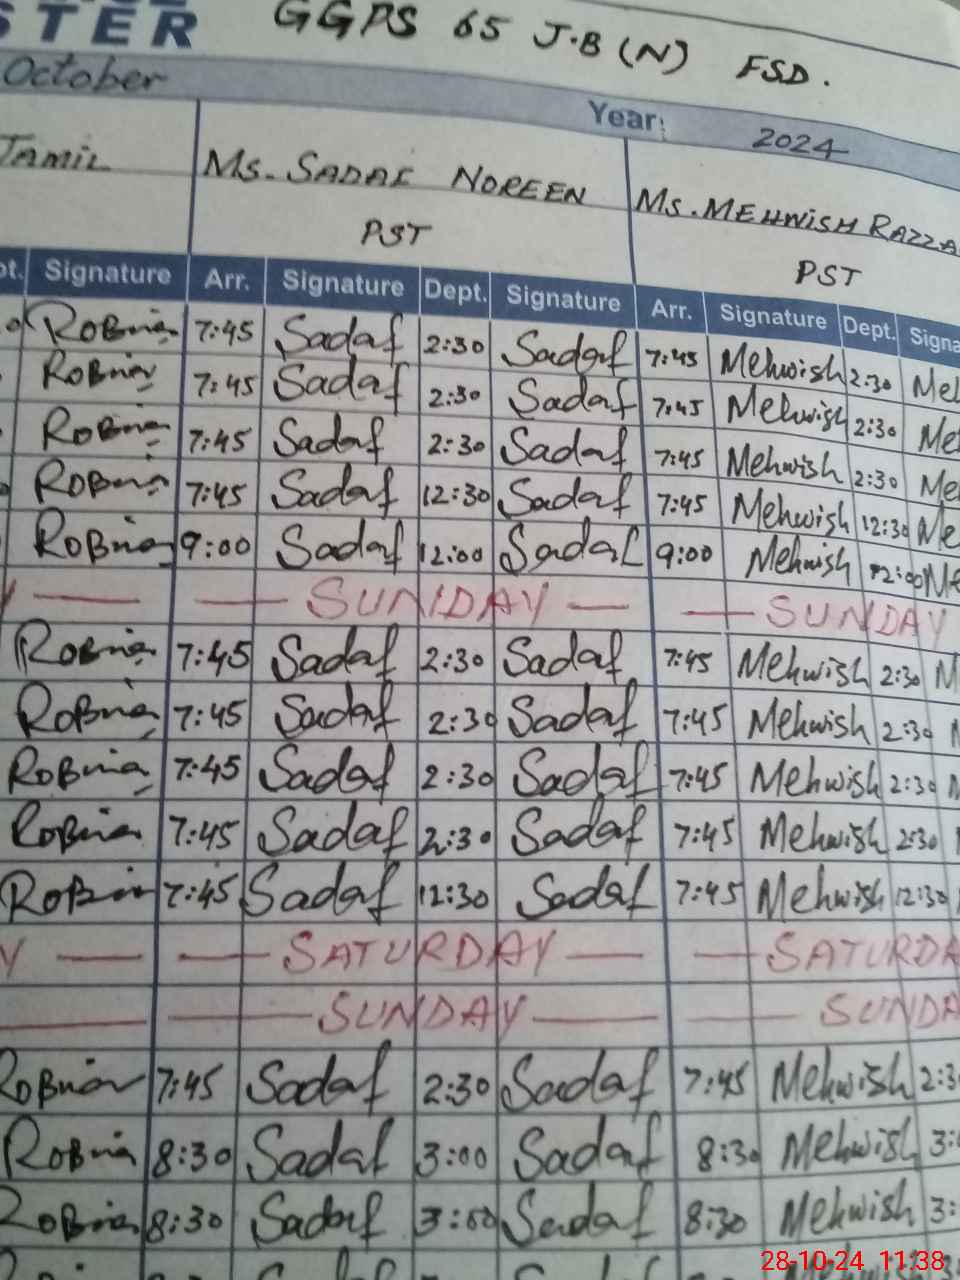 STER GGPS 65 J.B (N) FSD.
October Year: 2024
Jamil Ms. SADAF NOREEN Ms. MEHWISH RAZZA
PST PST
pt. Signature Arr. Signature Dept. Signature Arr. Signature Dept. Signa
Robina 7:45 Sadaf 2:30 Sadaf 7:45 Mehwish 2:30 Me
Robina 7:45 Sadaf 2:30 Sadaf 7:45 Mehwish 2:30 Me
Robina 7:45 Sadaf 2:30 Sadaf 7:45 Mehwish 2:30 Me
Robina 7:45 Sadaf 12:30 Sadaf 7:45 Mehwish 12:30 Me
Robina 9:00 Sadaf 12:00 Sadaf 9:00 Mehwish 12:00 Me
Y — — SUNDAY — — SUNDAY
Robina 7:45 Sadaf 2:30 Sadaf 7:45 Mehwish 2:30 M
Robina 7:45 Sadaf 2:30 Sadaf 7:45 Mehwish 2:30
Robina 7:45 Sadaf 2:30 Sadaf 7:45 Mehwish 2:30
Robina 7:45 Sadaf 2:30 Sadaf 7:45 Mehwish 2:30
Robina 7:45 Sadaf 12:30 Sadaf 7:45 Mehwish 12:30
Y — — SATURDAY — — SATURDA
— — SUNDAY — SUNDA
Robina 7:45 Sadaf 2:30 Sadaf 7:45 Mehwish 2:3
Robina 8:30 Sadaf 3:00 Sadaf 8:30 Mehwish 3:
Robina 8:30 Sadaf 3:00 Sadaf 8:30 Mehwish 3:
28-10-24 11:38